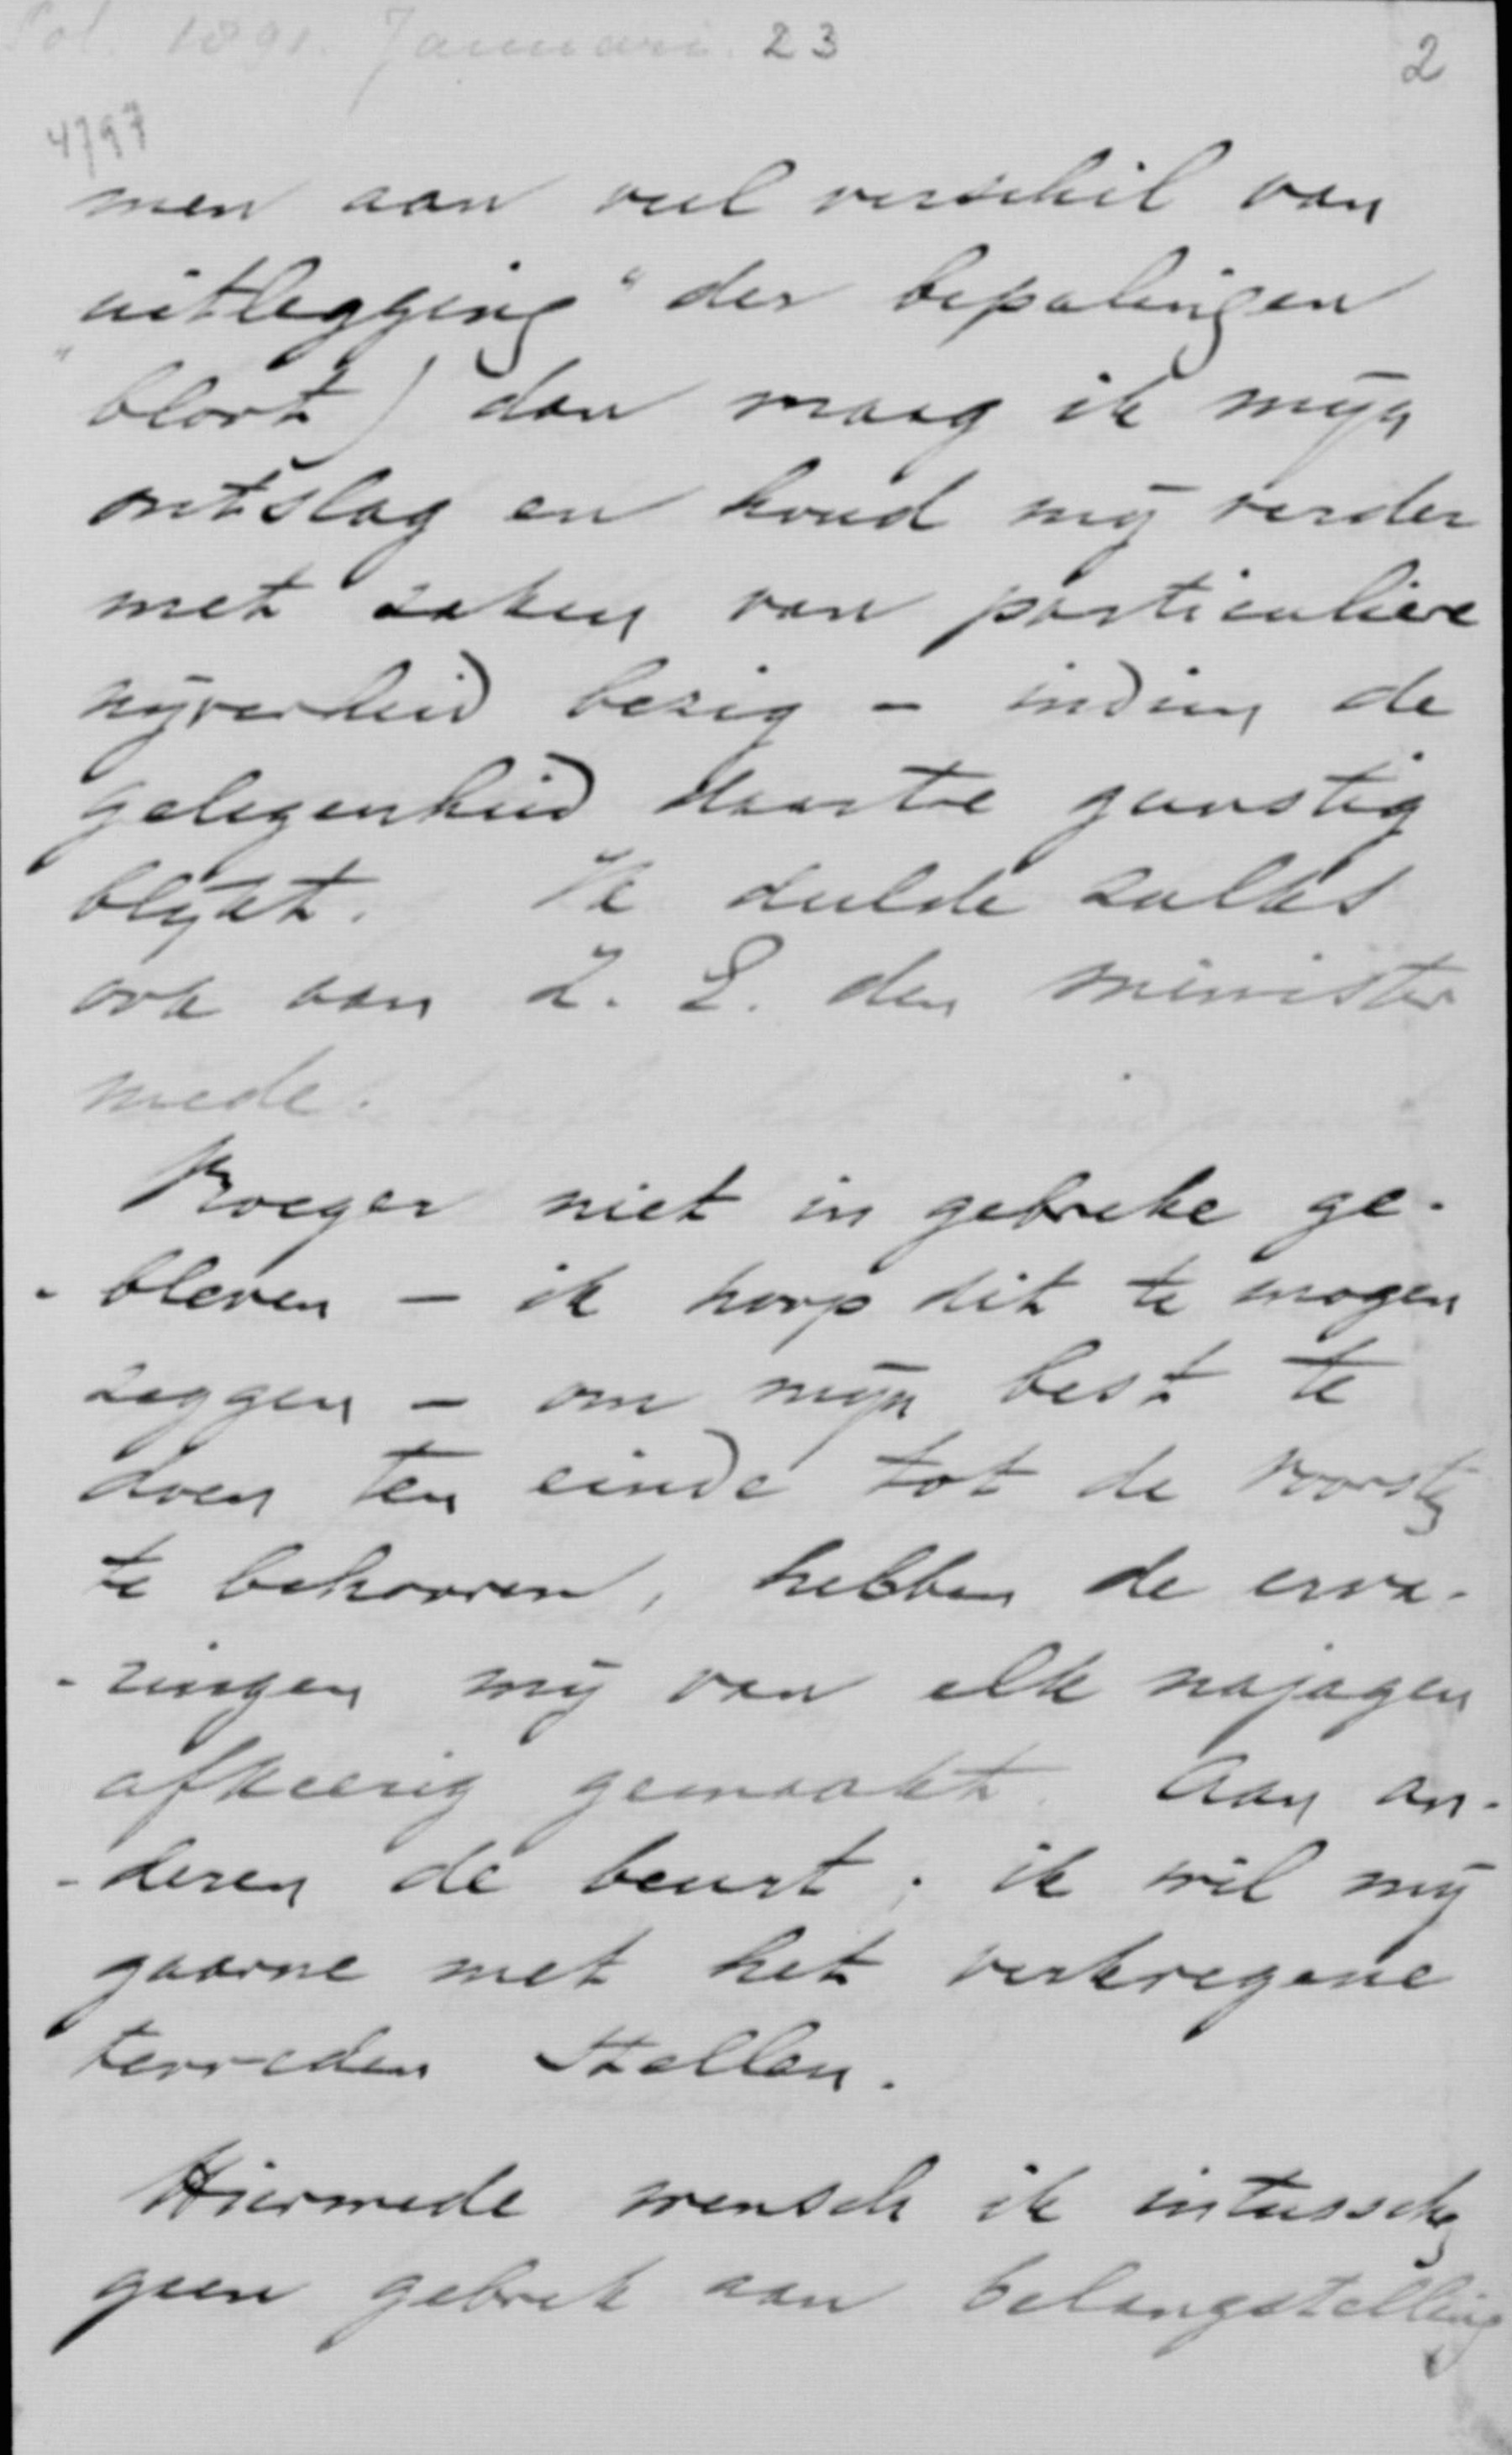 Pol. 1891. Januari. 23
2
4797
men aan veel verschil van
uitlegging" der bepalingen
"bloot) dan vraag ik mijn
ontslag en houd mij verder
met zaken van particuliere
nijverheid bezig - indien de
gelegenheid daartoe gunstig
blijkt. Ik deelde zulks
ook aan Z. E. den minister
mede.
Vroeger niet in gebreke ge-
-bleven - ik hoop dit te mogen
zeggen - om mijn best te
doen ten einde tot de voorsten
te behooren, hebben de erva-
-ringen mij van elk najagen
afkeerig gemaakt. Aan an-
-deren de beurt; ik wil mij
gaarne met het verkregene
tevreden stellen.
Hiermede wensch ik intusschen
geen gebrek aan belangstelling